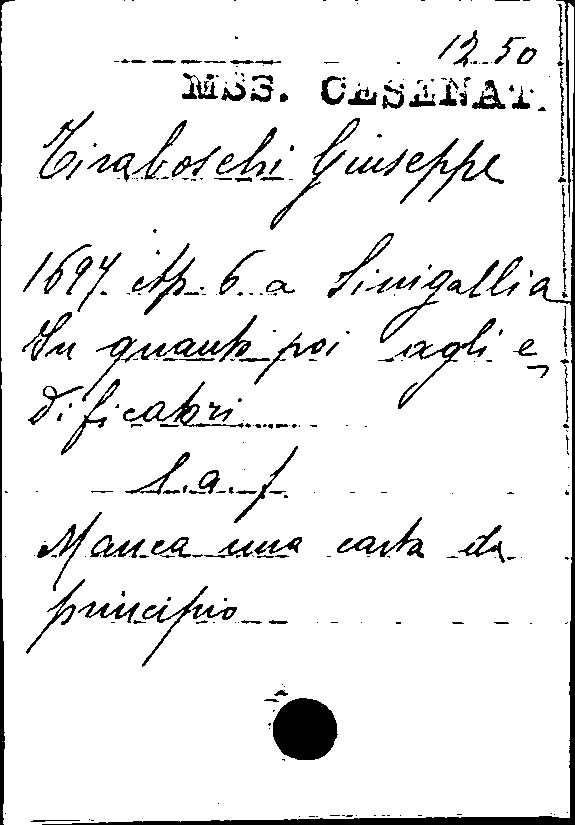 12.50
MSS. CESENAT.
Tiraboschi Giuseppe
1697. Ap. 6. a Sinigallia
In quanto poi agli e,
dificatori
L. a. f.
Manca una carta da
principio